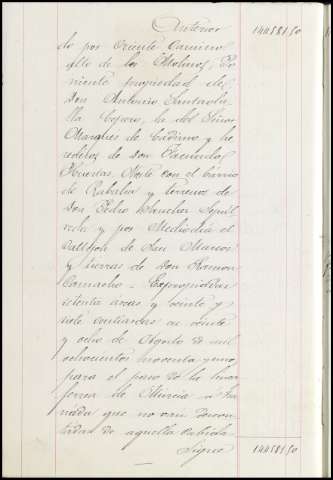 Anterior 14458150
do por Oriente Camino
alto de los Molinos, Po
niente propiedad de
Don Antonio
lla Cojaro, la del Señor
Marques de Cadimo y he
rederos de Don Facundo
Huertas, Norte con el barrio
de Rabaloa y terreno de
Don Pedro Sanchez Sepúl
veda y por Mediodia el
Callejon de San Marcos
y tierras de Don Ramon
Camacho - Expropiadas
setenta areas y veinte y
siete centiareas en veinte
y ocho de Agosto de mil
ochocientos noventa y uno
para el paso de la linea
ferrea de Murcia a Gra
nada que no van descon
tadas de aquella cabida
Sigue 14458150